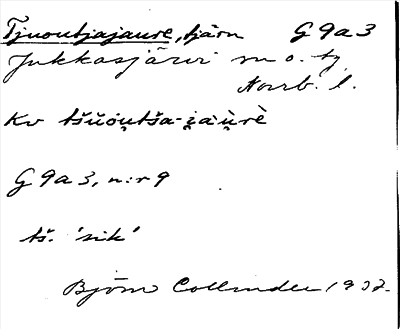 Tjuoutjajaure, tjärn G 9 a 3
Jukkasjärvi sn o. tg.
Norrb. l.
Kv tšŭóu̯tša-i̯àu̯rè
G 9 a 3, n:r 9
tš. 'sik'
Björn Collinder 1932.